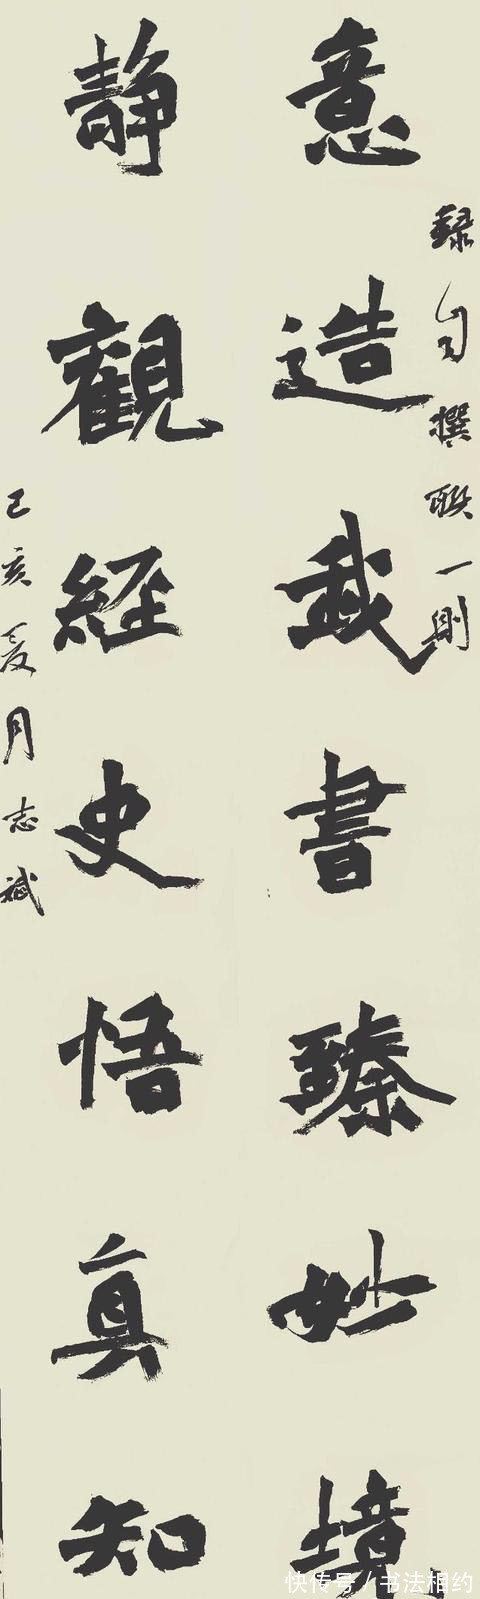 錄自撰聯一則
意造我書臻妙境
静觀經史悟真知
己亥夏月志斌
快传号/书法相约